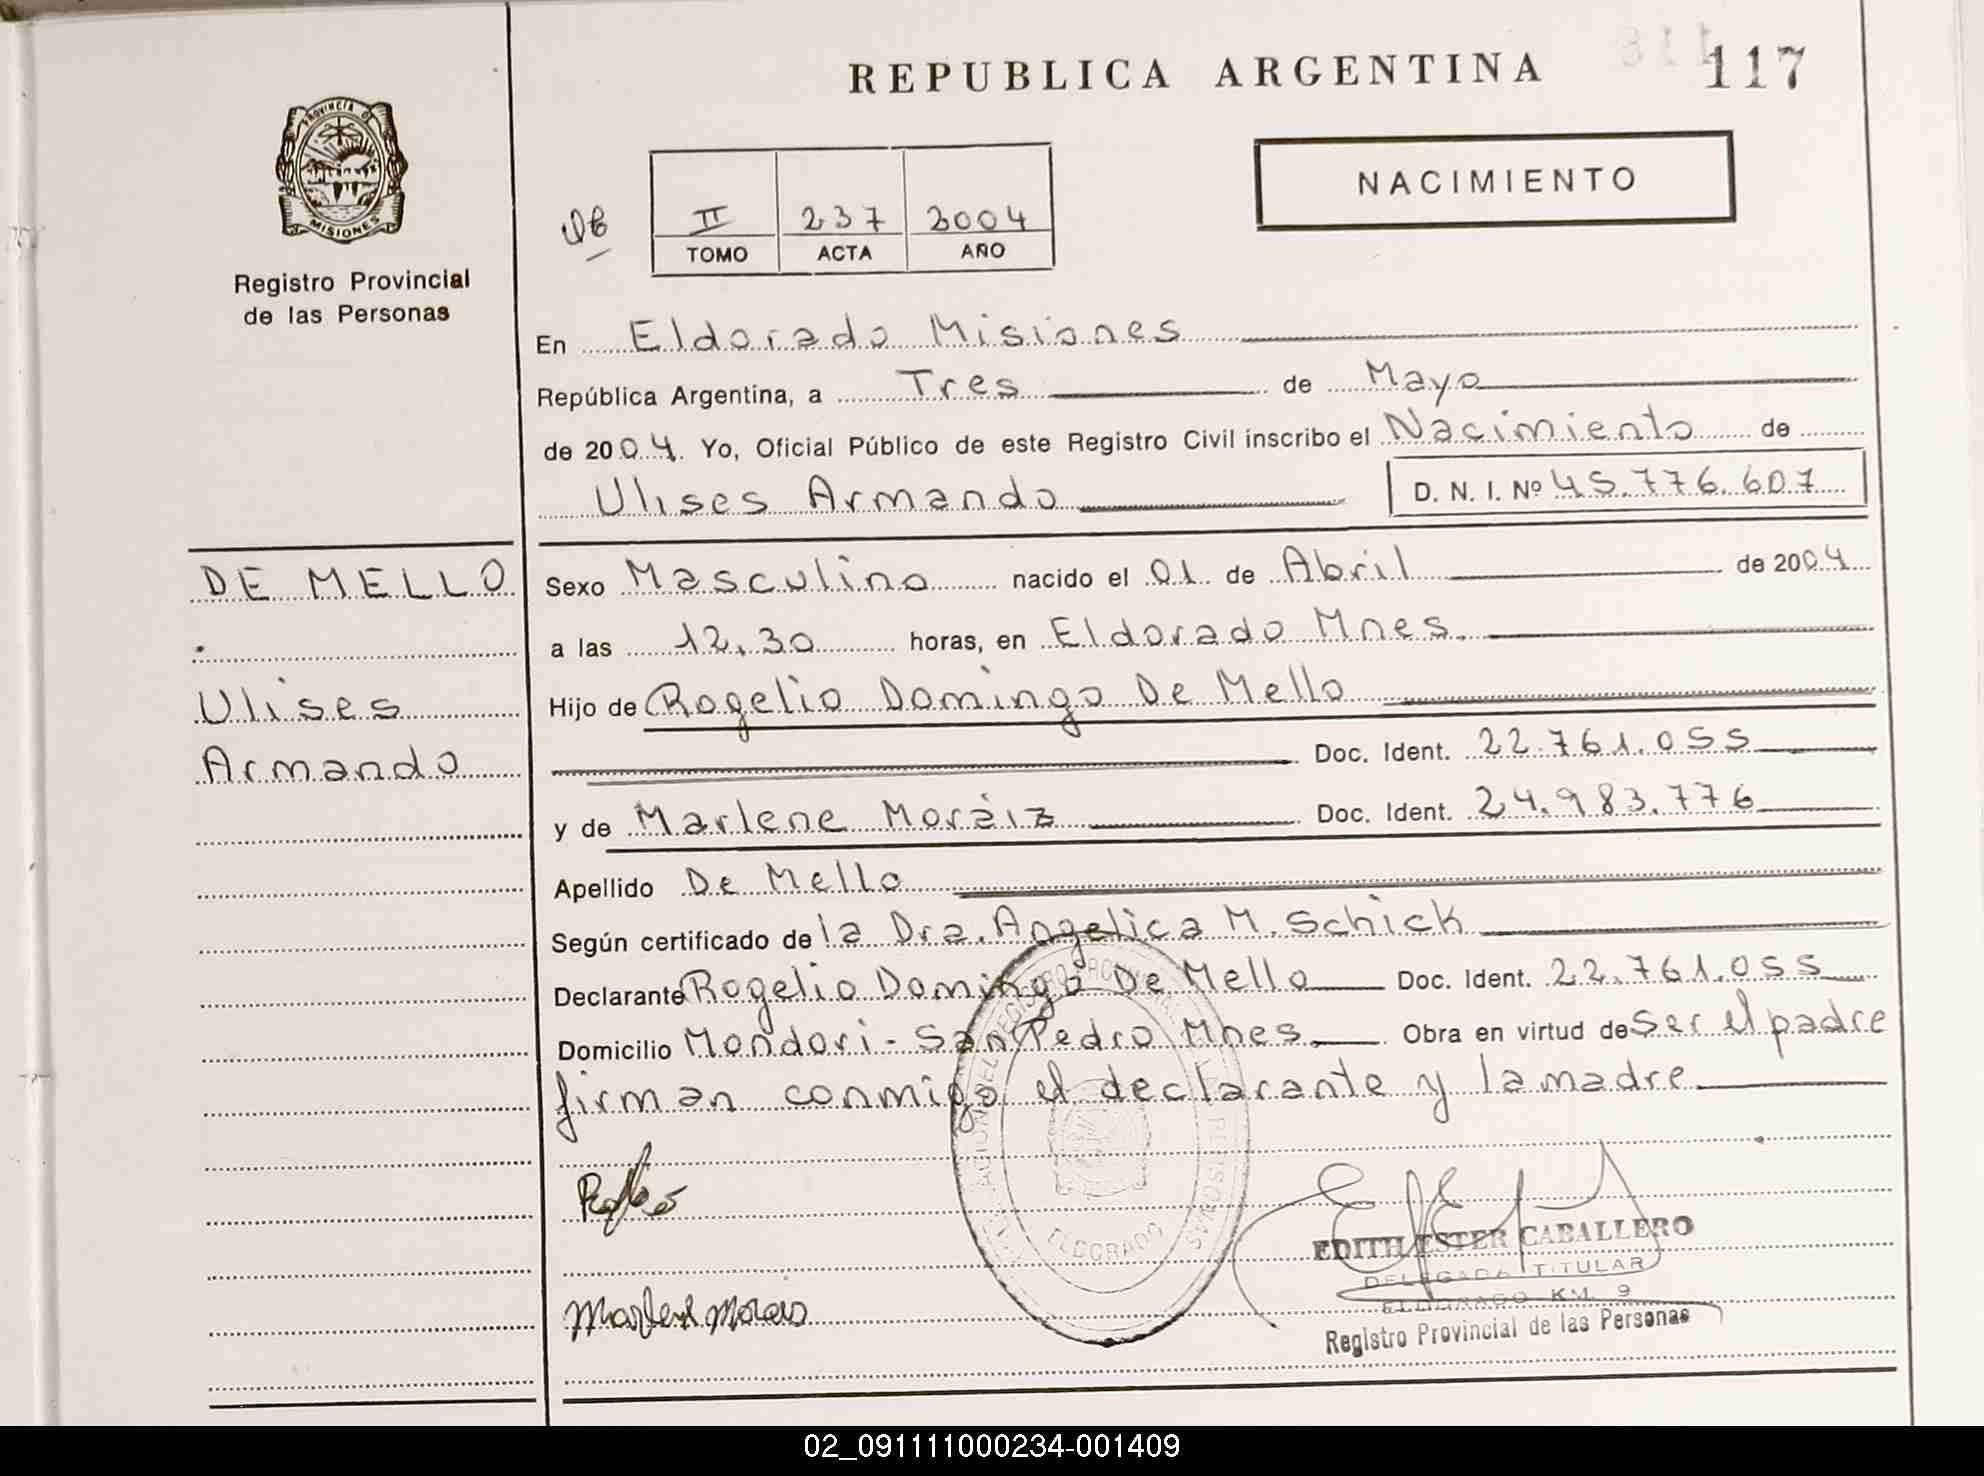 REPUBLICA ARGENTINA
117
PROVINCIA DE
MISIONES
Registro Provincial
de las Personas
NACIMIENTO
II 237 2004
TOMO ACTA AÑO
En Eldorado Misiones
República Argentina, a Tres de Mayo
de 2004. Yo, Oficial Público de este Registro Civil inscribo el Nacimiento de
Ulises Armando D. N. I. Nº 45.776.607
DE MELLO
Ulises
Armando
Sexo Masculino nacido el 01 de Abril de 2004
a las 12,30 horas, en Eldorado Mnes.
Hijo de Rogelio Domingo De Mello
Doc. Ident. 22.761.055
y de Marlene Moráiz Doc. Ident. 24.983.776
Apellido De Mello
Según certificado de la Dra. Angelica M. Schick
Declarante Rogelio Domingo De Mello Doc. Ident. 22.761.055
Domicilio Mondori - San Pedro Mnes. Obra en virtud de Ser el padre
firman conmigo el declarante y la madre
ELDORADO
Marlene Morais
EDITH ESTER CABALLERO
DELEGADA TITULAR
ELDORADO KM. 9
Registro Provincial de las Personas
02_091111000234-001409